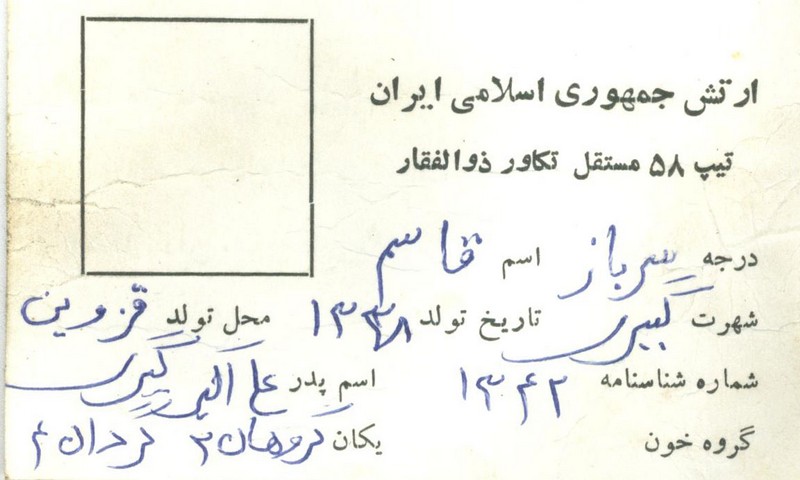 ارتش جمهوری اسلامی ایران
تیپ ۵۸ مستقل تکاور ذوالفقار
درجه سرباز اسم قاسم
شهرت کبیری تاریخ تولد ۱۳۳۸ محل تولد قزوین
شماره شناسنامه ۱۳۴۲ اسم پدر علی اکبر
گروه خون یکان گروهان ۳ گردان ۴